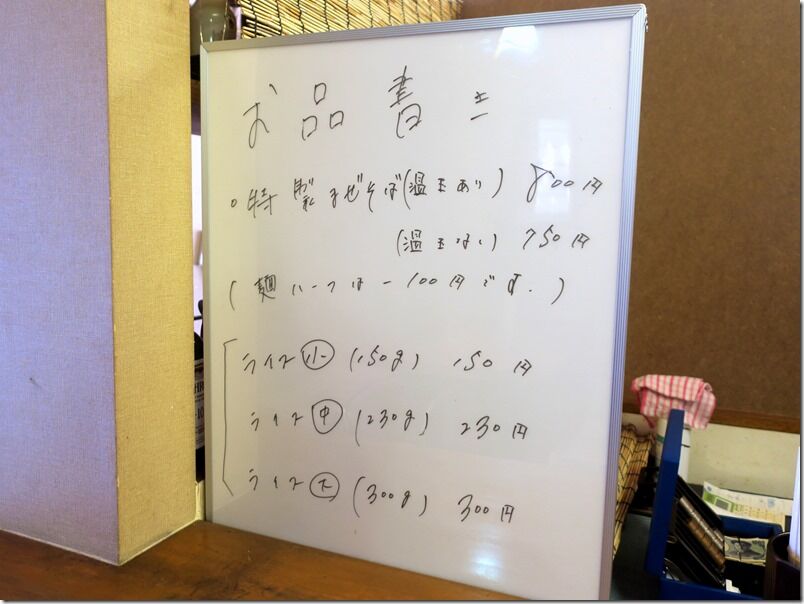 お品書き
○特製まぜそば(温玉あり) 800円
(温玉なし) 750円
(麺ハーフは-100円です.)
ライス小 (150g) 150円
ライス中 (230g) 230円
ライス大 (300g) 300円